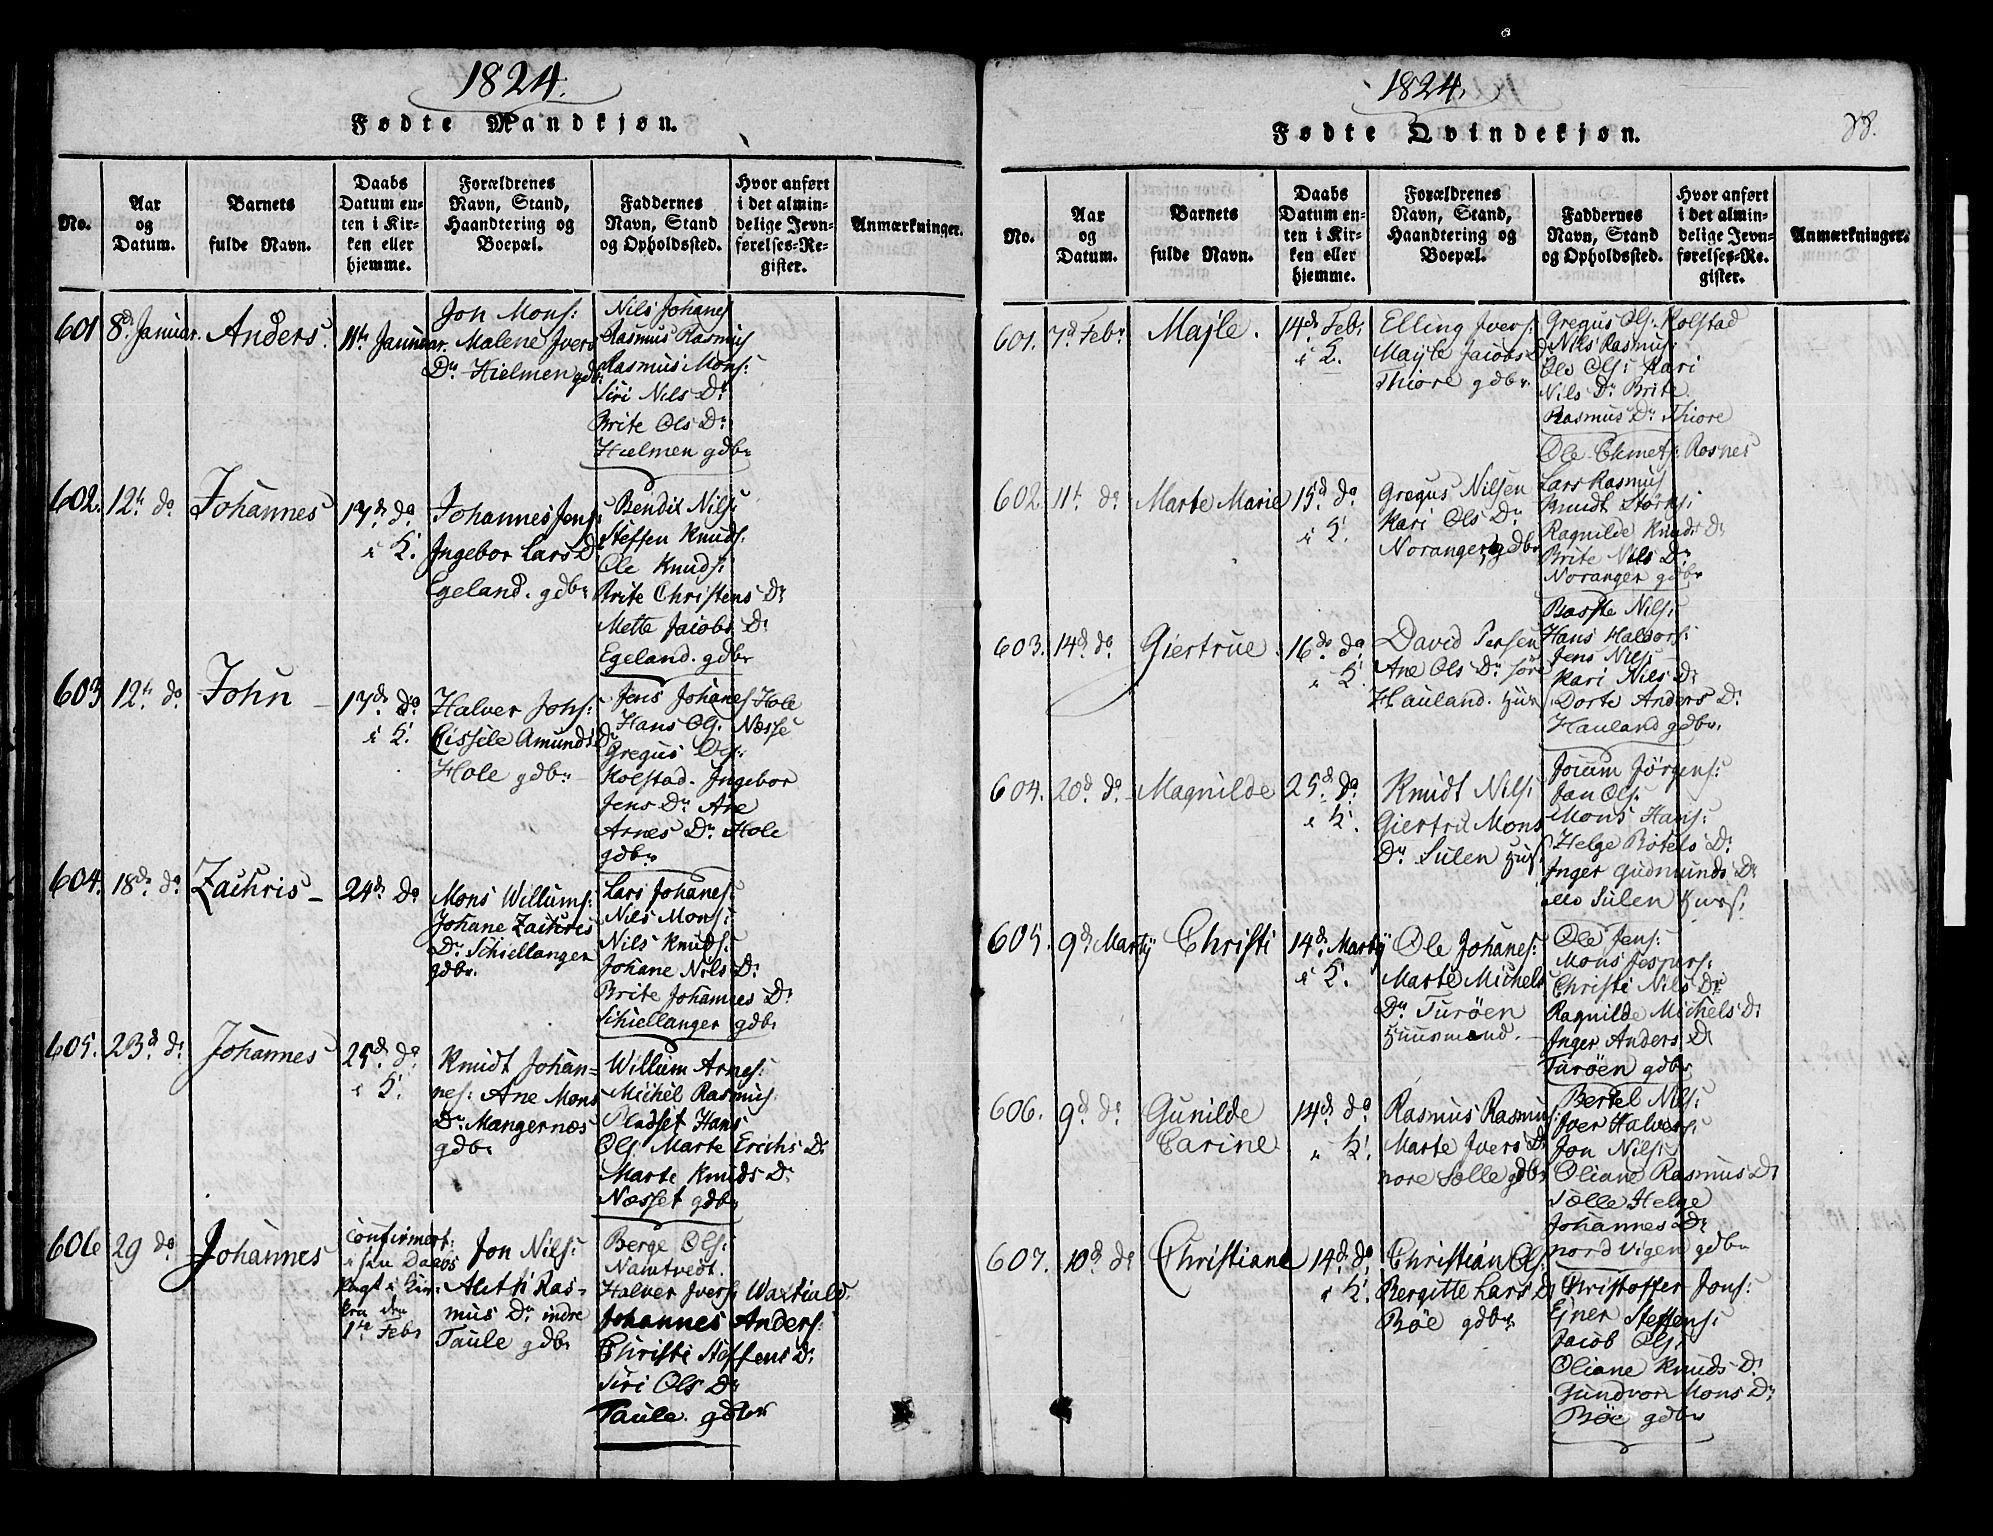 1824.
Fødte Mandkjøn.
No.
Aar
og
Datum.
Barnets
fulde Navn.
Daabs
Datum en-
ten i Kir-
ken eller
hjemme.
Forældrenes
Navn, Stand,
Haandtering og
Boepæl.
Faddernes
Navn, Stand
og Opholdssted.
Hvor anført
i det almin-
delige Jevn-
førelses-Re-
gister.
Anmærkninger.
601
8d. Januar.
Anders.
11te Januar.
Jon Mons:
Malene Jvers
Dr. Hielmen gdbr
Nils Johanes
Rasmus Rasmus
Rasmus Mons:
Siri Nils Dr
Brite Ols Dr
Hielmen gdbr
602.
12te do
Johannes
17de do
i K.
Johannes Jens:
Ingebor Lars Dr
Egeland. gdbr
Bendix Nils:
Steffen Knuds:
Ole Knuds:
Brite Christens Dr
Mette Jacobs Dr
Egeland. gdbr
603
12te do
John
17de do
i K.
Halver Johs:
Cissele Amunds Dr
Hole gdbr
Jens Johanes Hole
Hans Ols. Næsse
Gregus Ols:
Kolstad. Ingebor
Jens Dr Ane
Arnes Dr Hole
gdbr
604.
18de do
Zachris
24de do
Mons Willums:
Johane Zachris
Dr Schiellanger
gdbr.
Lars Johanes:
Nils Mons:
Nils Knuds:
Johane Nils Dr
Brite Johannes Dr
Schiellanger gdbr
605.
23d do
Johannes
25de do
i K.
Knudt Johan-
nes: Ane Mons
Dr Mangernæs
gdbr
Willum Arnes:
Michel Rasmus
Pladset Hans
Ols Marte Erichs Dr
Marte Knuds Dr
Næsset gdbr
606
29 do
Johannes
confirmert:
i sin Daabs
Pagt i Kir:
kra den
1te Febr
Jon Nils:
Aleth Ras-
mus Dr indre
Taule gdbr
Berge Ols:
Namtvedt.
Halver Jvers
Johannes Anders:
Christi Steffens Dr
Siri Ols Dr
Taule. gdbr
1824.
88.
Fødte Qvindekjøn.
No.
Aar
og
Datum.
Barnets
fulde Navn.
Daabs
Datum en-
ten i Kir-
ken eller
hjemme.
Forældrenes
Navn, Stand,
Haandtering og
Boepæl.
Faddernes
Navn, Stand
og Opholdssted.
Hvor anført
i det almin-
delige Jevn-
førelses-Re-
gister.
Anmærkninger.
601.
7d Febr
Majle.
14de Feb:
i K.
Elling Jvers:
Majle Jacobs Dr
Thiore gdbr
Gregus Ols: Kolstad
Nils Rasmus:
Ole Ols: Kari
Nils Dr Brite
Rasmus Dr Thiore
602.
11te do
Marte Marie
15d do
i K.
Gregus Nilsen
Kari Ols Dr
Noranger gdbr
Ole Rosnes
Lars Rasmus
Knudt Størks:
Ragnilde Knuds Dr
Brite Nils Dr
Noranger gdbr
603.
14de do
Giertrue.
16de do
i K.
David Persen
Ane Ols Dr søre
Hauland.
Nils:
Hans Haldors:
Jens Nils:
Kari Nils Dr
Dorte Anders Dr
Hauland gdbr
604.
20d do
Magnilde
25de do
i K.
Knudt Nils:
Giertru Mons
Dr Sulen
Jocum Jørgens:
Jan Ols:
Mons Hans:
Helge Botels Dr
Inger Gudmunds Dr
Sulen
605.
9de Martij
Christi
14de Martij
i K.
Ole Johanes:
Marte Michels
Dr Turøen
Huusmand.
Ole Jens:
Mons Jespers:
Christi Nils Dr
Ragnilde Michels Dr
Inger Anders Dr
Turøen gdbr
606.
9de do
Gunilde
Carine
14de do
i K.
Rasmus Rasmus:
Marte Jvers Dr
nore Sælle gdbr
Bertel Nils:
Jver Halvers:
Jon Nils:
Oliane Rasmus Dr
Sælle Helge
Johannes Dr
nord Vigen gdbr
607.
10de do
Christiane
14de do
i K.
Christian Ols:
Bergitte Lars Dr
Bøe gdbr
Christoffer Jons:
Ejner Steffens:
Jacob Ols:
Oliane Knuds Dr
Gundvor Mons Dr
Bøe gdbr